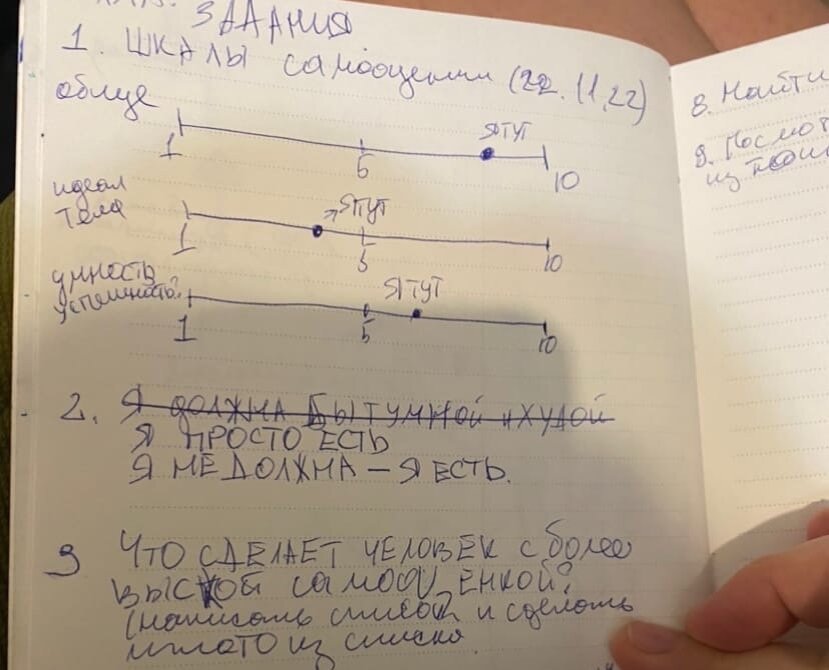 ЗАДАНИЯ
1. ШКАЛЫ самооценки (22.11.22)
общее
Я ТУТ
1 5 10
идеал
тела
Я ТУТ
1 5 10
умность
успешность?
Я ТУТ
1 5 10
2. Я ДОЛЖНА БЫТЬ УМНОЙ И ХУДОЙ
Я ПРОСТО ЕСТЬ
Я НЕ ДОЛЖНА – Я ЕСТЬ.
3 ЧТО СДЕЛАЕТ ЧЕЛОВЕК с более
ВЫСОКОЙ самооценкой?
(написать список и сделать
что-то из списка
8. Найти
9.
из